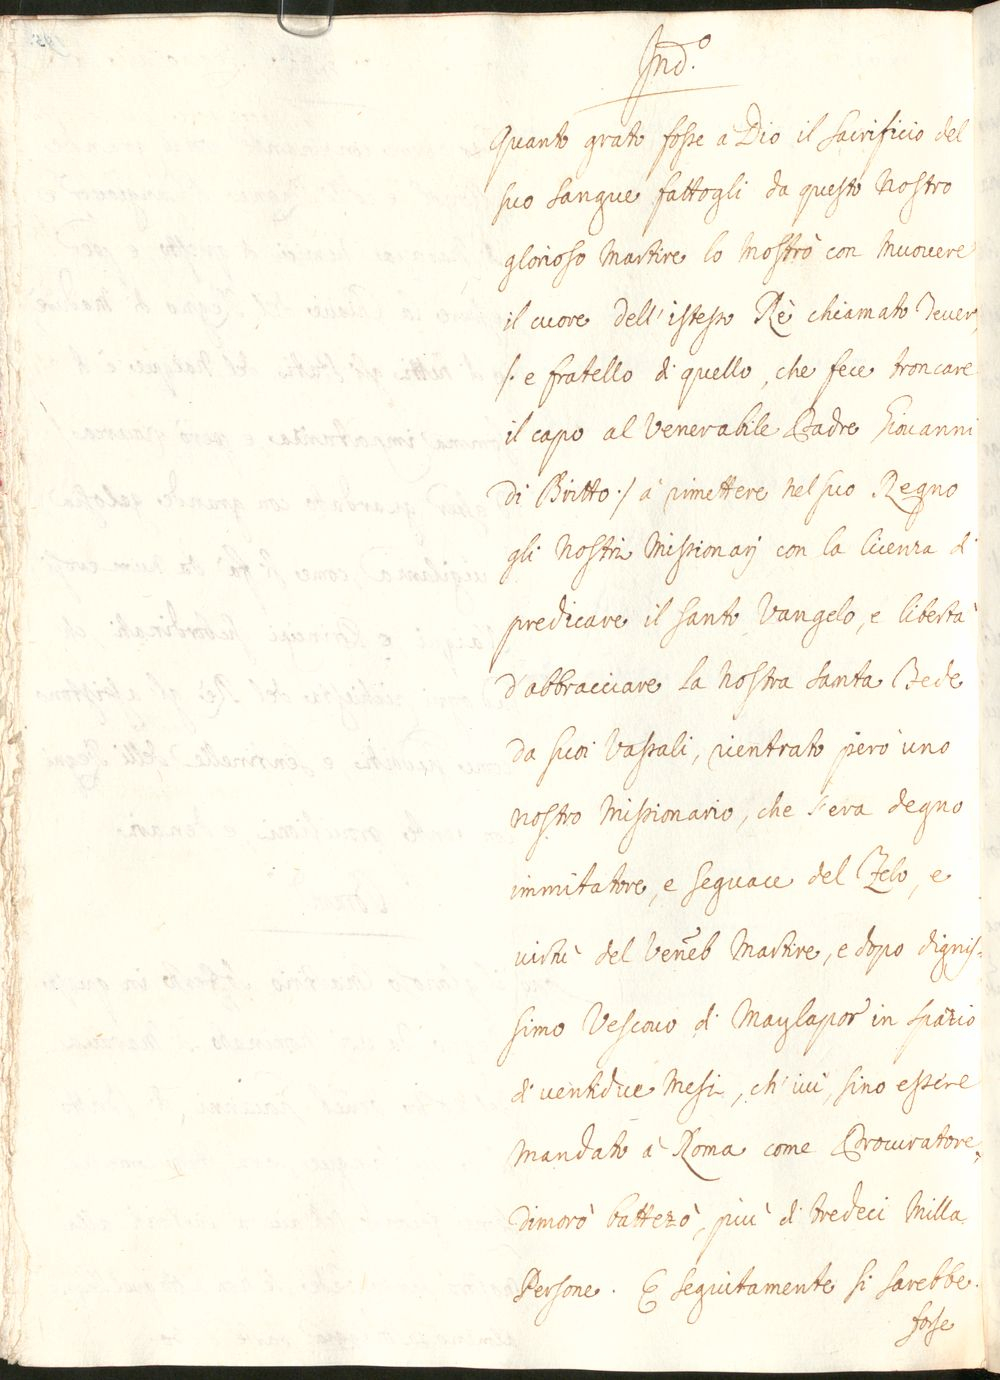 Ind.º
Quanto grato fosse à Dio il sacrificio del
suo sangue fattogli da questo nostro
glorioso Martire lo mostrò con muovere
il cuore dell'istesso Rè chiamato Tever,
/. e fratello di quello, che fece troncare
il capo al Venerabile Padre Giovanni
di Britto ./ à rimettere nel suo Regno
gli nostri Missionarj con la licenza di
predicare il santo Vangelo, e libertà
d'abbracciare la nostra santa Fede
da suoi Vassali, rientrato però uno
nostro Missionario, che era degno
immitatore, e seguace del Zelo, e
virtù del Veneb Martire, e dopo dignis-
simo Vescovo di Maylapor in spazio
di ventidue Mesi, ch'ivi, sino essere
mandato à Roma come Procuratore,
dimorò battezò, più di tredeci Milla
Persone. E seguitamente si sarebbe
forse